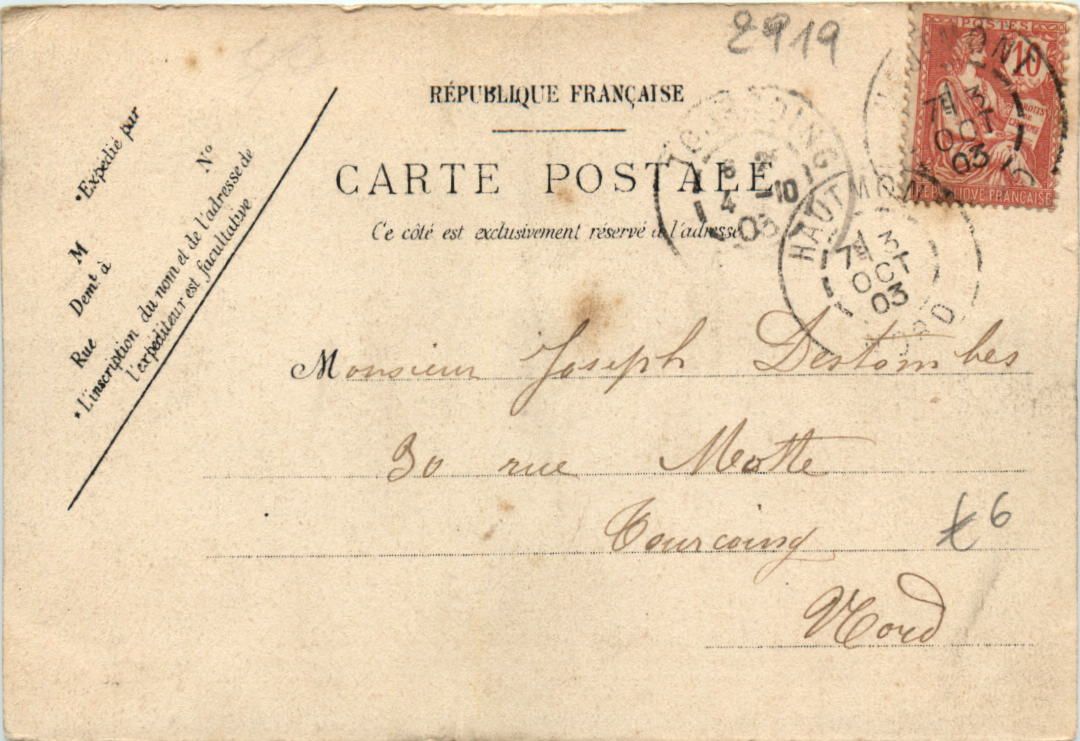 2919
RÉPUBLIQUE FRANÇAISE
CARTE POSTALE
Ce côté est exclusivement réservé à l'adresse
*Expédié par
M
N°
Demt. à
Rue
*L'inscription du nom et de l'adresse de
l'expéditeur est facultative
POSTES
10
DROITS
DE
L'HOMME
REPUBLIQUE FRANÇAISE
HAUTMONT
7E 3
OCT
03
TOURCOING
4 10
03
HAUTMONT
7E 3
OCT
03
NORD
Monsieur Joseph Destombes
30 rue Motte
Tourcoing
Nord
6